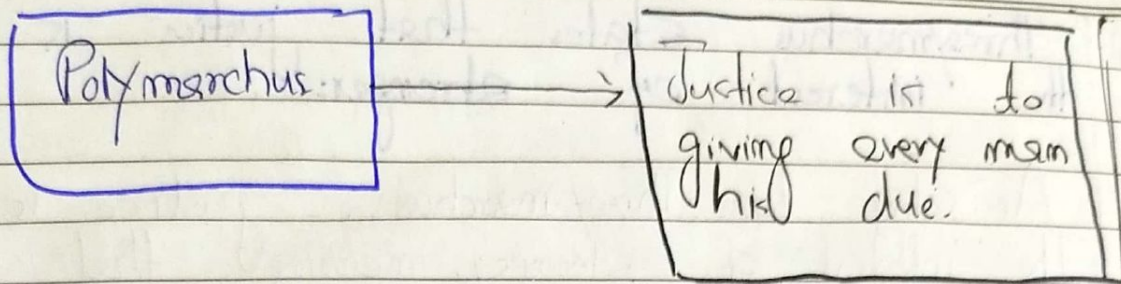 Polymarchus.
Justice is to
giving every man
his due.